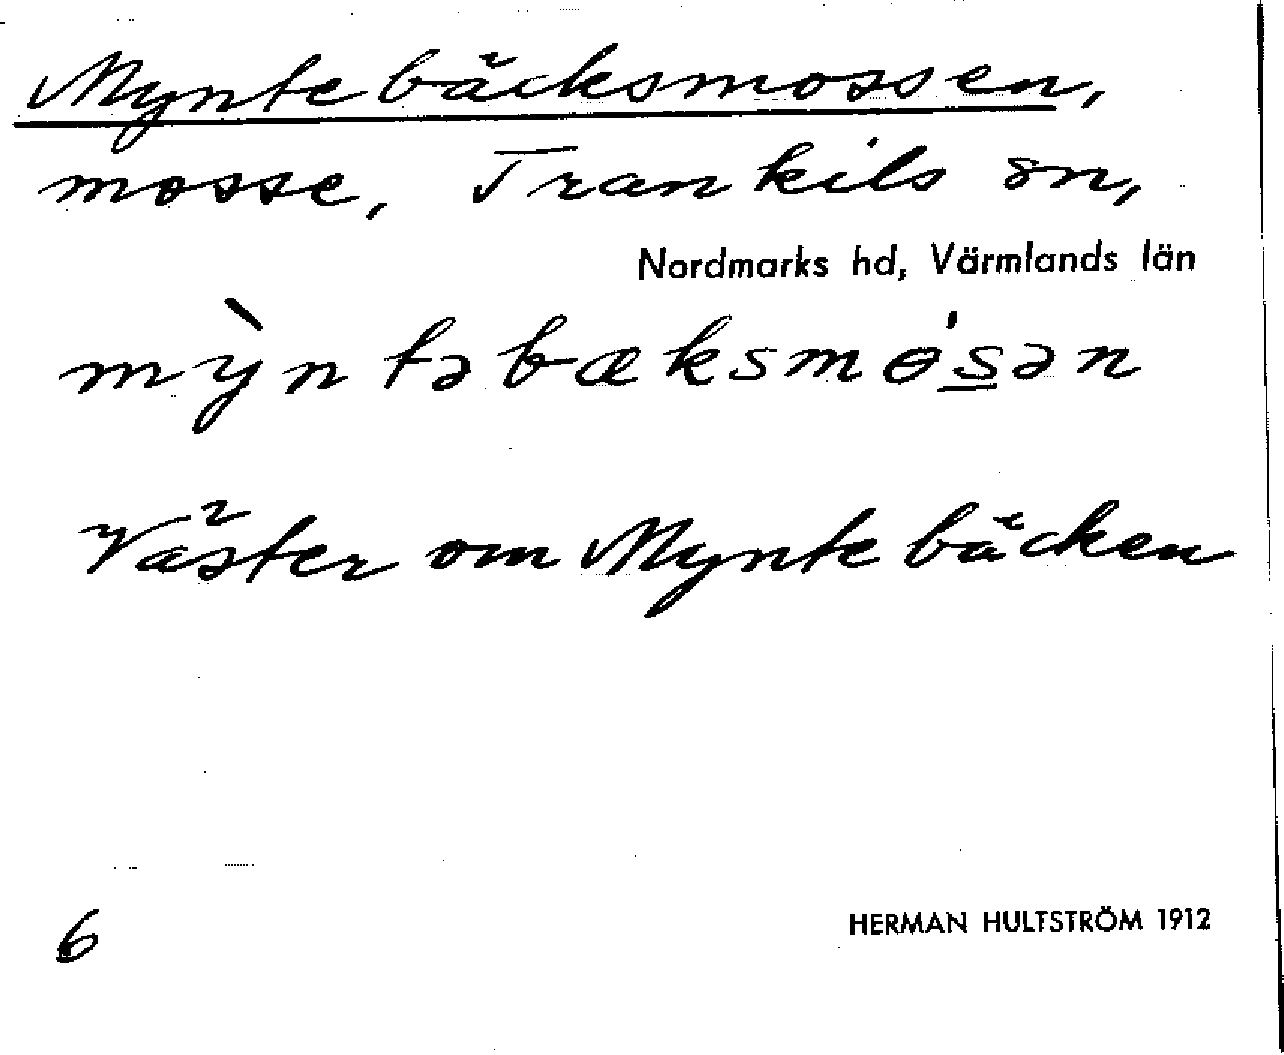 Myntebäcksmossen,
mosse, Trankils sn,
Nordmarks hd, Värmlands län
mỳntəbæksmɵ́s̲ən
Väster om Myntebäcken
6
HERMAN HULTSTRÖM 1912